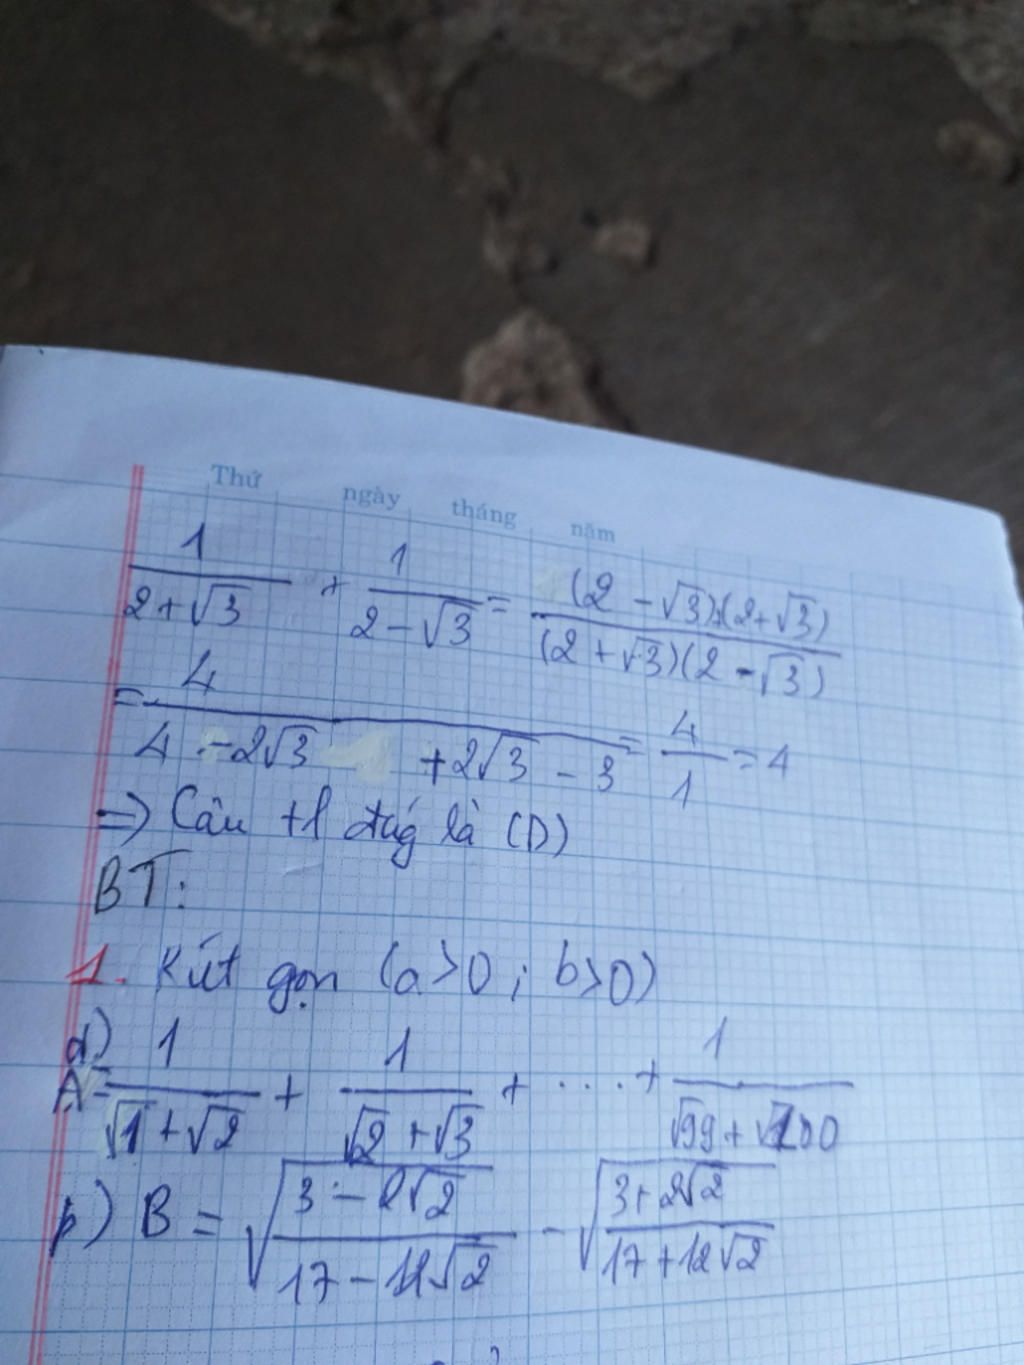 Thứ ngày tháng năm
1/(2+√3) + 1/(2-√3) = ((2-√3)+(2+√3))/((2+√3)(2-√3))
= 4/(4-2√3+2√3-3) = 4/1 = 4
=> Câu tl đúg là (D)
BT:
1. Rút gọn (a>0; b>0)
a)
A = 1/(√1+√2) + 1/(√2+√3) + .... + 1/(√99+√100)
b) B = √((3-2√2)/(17-12√2)) - √((3+2√2)/(17+12√2))